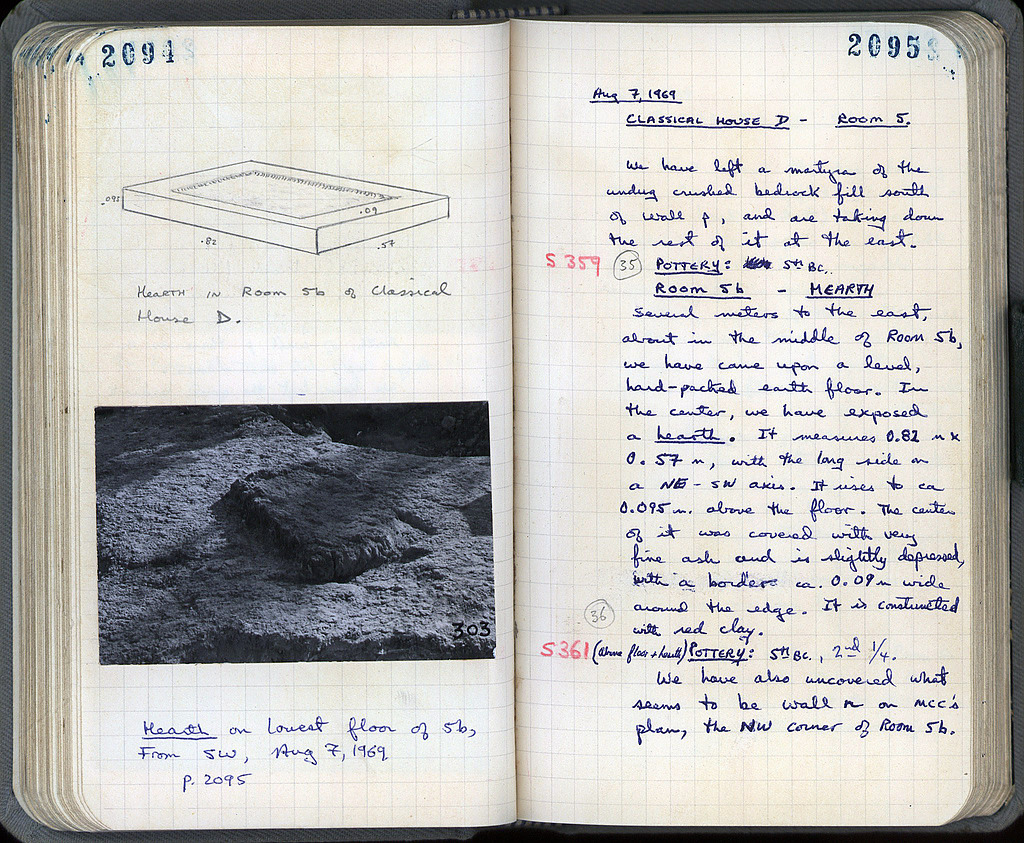 2094
.095
.09
.82
.57
Hearth in Room 5b of Classical
House D.
303
Hearth on lowest floor of 5b,
From SW, Aug 7, 1969
p. 2095
2095
Aug 7, 1969
CLASSICAL HOUSE D - ROOM 5.
We have left a martyra of the
undug crushed bedrock fill south
of wall p, and are taking down
the rest of it at the east.
S 359 35 POTTERY: 5th BC.
ROOM 5b - HEARTH
Several meters to the east,
about in the middle of Room 5b,
we have came upon a level,
hard-packed earth floor. In
the center, we have exposed
a hearth. It measures 0.82 m x
0.57 m, with the long side on
a NE - SW axis. It rises to ca
0.095 m. above the floor. The center
of it was covered with very
fine ash and is slightly depressed,
with a border ca. 0.09 m wide
36 around the edge. It is constructed
with red clay.
S 361 (above floor + hearth) POTTERY: 5th BC., 2nd 1/4.
We have also uncovered what
seems to be wall n on MCC's
plan, the NW corner of Room 5b.